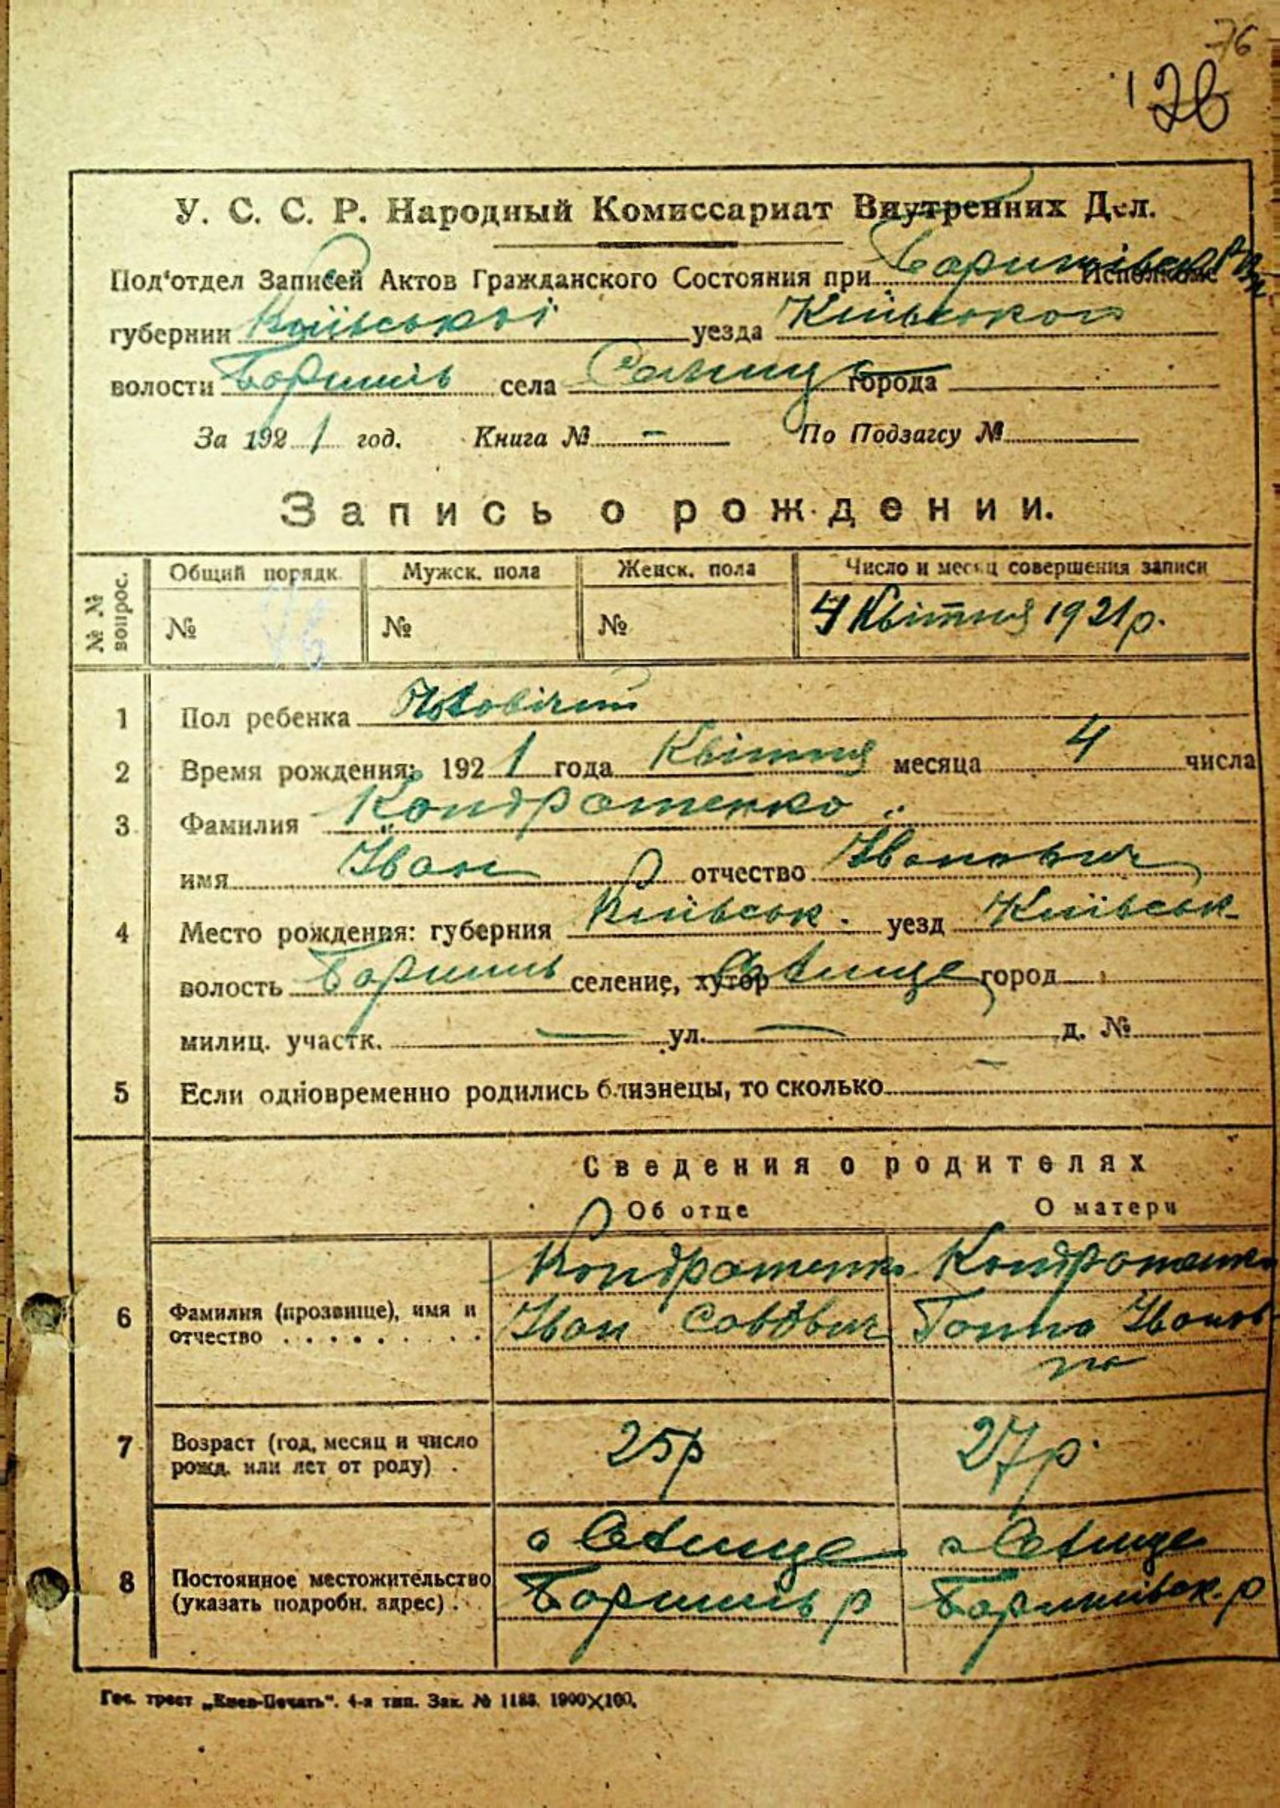 76
126
У. С. С. Р. Народный Комиссариат Внутренних Дел.
Под‘отдел Записей Актов Гражданского Состояния при Исполкоме
губернии Київської уезда Київського
волости Баришів села города
За 1921 год. Книга № — По Подзагсу №
Запись о рождении.
№№ вопрос. Общий порядк. Мужск. пола Женск. пола Число и месяц совершения записи
№ 76 № № 4 Квітня 1921 р.
1 Пол ребенка Чоловічий
2 Время рождения: 1921 года Квітня месяца 4 числа
3 Фамилия Кондратенко
имя Іван отчество Іванович
4 Место рождения: губерния Київськ. уезд Київськ.
волость Баришів селение, хутор город
милиц. участк. — ул. — д. №
5 Если одновременно родились близнецы, то сколько —
Сведения о родителях
Об отце О матери
Кондратенко Кондратенко
6 Фамилия (прозвище), имя и отчество . . . . . . . . . Іван Савович Ганна Іванов
на
7 Возраст (год, месяц и число рожд. или лет от роду) . 25р 27р.
8 Постоянное местожительство (указать подробн. адрес) . Баришів р Баришівськ. р
Гос. трест „Киев-Печать“. 4-я тип. Зак. № 1188. 1900×100.